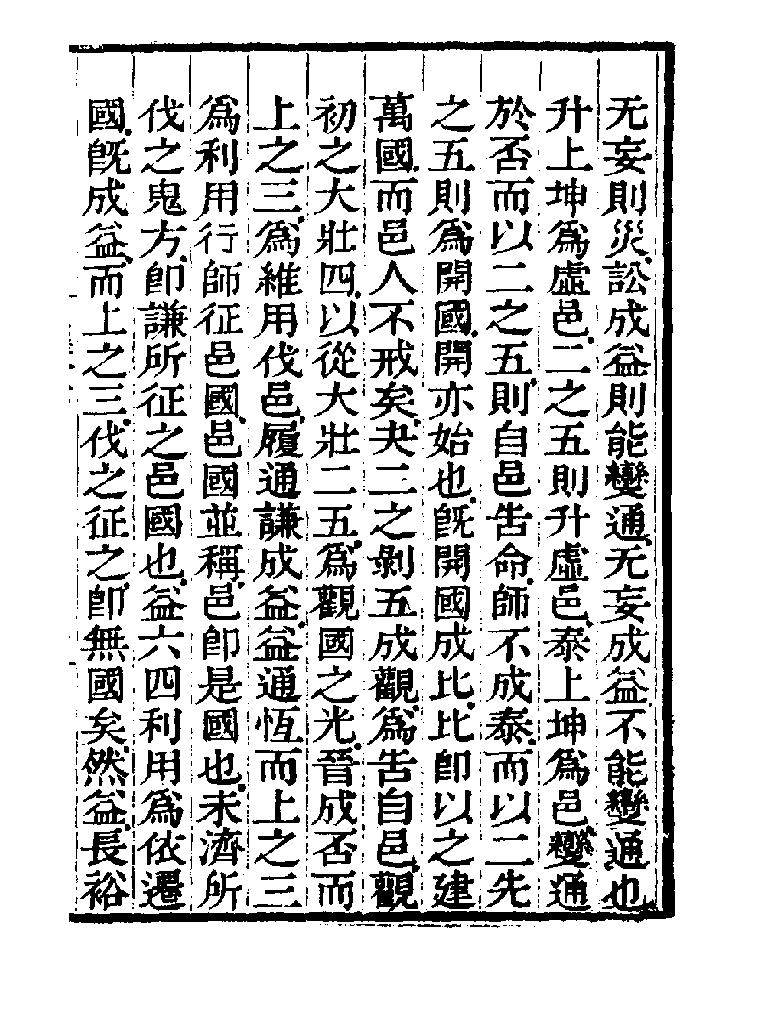 无妄則災訟成益則能變通无妄成益不能變通也
升上坤爲虛邑二之五則升虛邑泰上坤爲邑變通
於否而以二之五則自邑告命師不成泰而以二先
之五則爲開國開亦始也旣開國成比比卽以之建
萬國而邑人不戒矣夬二之剝五成觀爲告自邑觀
初之大壯四以從大壯二五爲觀國之光晉成否而
上之三爲維用伐邑履通謙成益益通恆而上之三
爲利用行師征邑國邑國並稱邑卽是國也未濟所
伐之鬼方卽謙所征之邑國也益六四利用爲依遷
國旣成益而上之三伐之征之卽無國矣然益長裕